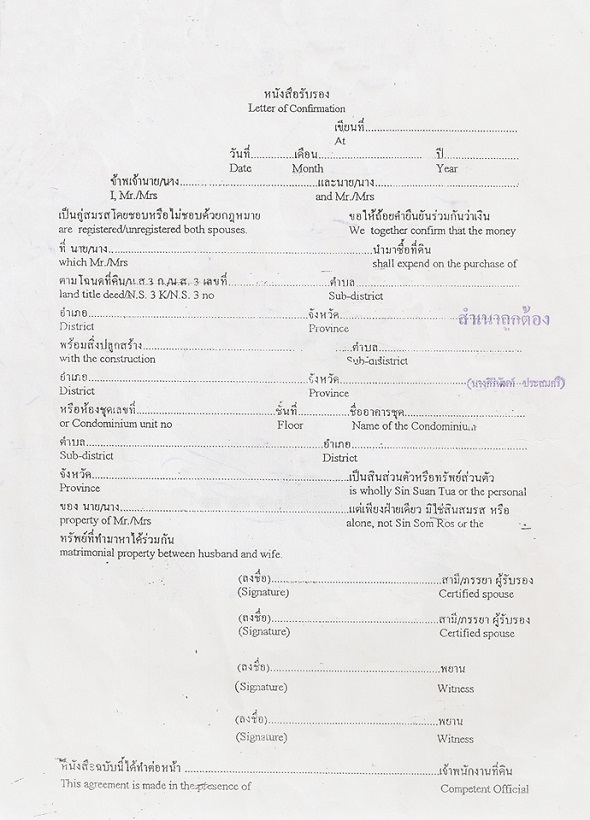 หนังสือรับรอง
Letter of Confirmation
เขียนที่..................................................
At
วันที่..............เดือน.................................. ปี.........................
Date Month Year
ข้าพเจ้านาย/นาง.............................................และนาย/นาง................................................
I, Mr./Mrs and Mr./Mrs
เป็นคู่สมรสโดยชอบหรือไม่ชอบด้วยกฎหมาย ขอให้ถ้อยคำยืนยันร่วมกันว่าเงิน
are registered/unregistered both spouses. We together confirm that the money
ที่ นาย/นาง.......................................................................................นำมาซื้อที่ดิน
which Mr./Mrs shall expend on the purchase of
ตามโฉนดที่ดิน/น.ส.3 ก./น.ส. 3 เลขที่.................................ตำบล..................................................
land title deed/N.S. 3 K/N.S. 3 no Sub-district
อำเภอ.........................................................................จังหวัด..................................................
District Province
สำเนาถูกต้อง
พร้อมสิ่งปลูกสร้าง.................................................. ....ตำบล..........................................
with the construction Sub-district
อำเภอ.........................................................................จังหวัด..........................................
District Province
(นางสิริพัฒก์ ประสมศรี)
หรือห้องชุดเลขที่.............................................ชั้นที่................ชื่ออาคารชุด..................................
or Condominium unit no Floor Name of the Condominium
ตำบล.............................................................................อำเภอ..................................................
Sub-district District
จังหวัด......................................................................................เป็นสินส่วนตัวหรือทรัพย์ส่วนตัว
Province is wholly Sin Suan Tua or the personal
ของ นาย/นาง..............................................................................แต่เพียงฝ่ายเดียว มิใช่สินสมรส หรือ
property of Mr./Mrs alone, not Sin Som Ros or the
ทรัพย์ที่ทำมาหาได้ร่วมกัน
matrimonial property between husband and wife.
(ลงชื่อ).......................................................สามี/ภรรยา ผู้รับรอง
(Signature) Certified spouse
(ลงชื่อ).......................................................สามี/ภรรยา ผู้รับรอง
(Signature) Certified spouse
(ลงชื่อ).......................................................พยาน
(Signature) Witness
(ลงชื่อ).......................................................พยาน
(Signature) Witness
หนังสือฉบับนี้ได้ทำต่อหน้า ..........................................................................เจ้าพนักงานที่ดิน
This agreement is made in the presence of Competent Official